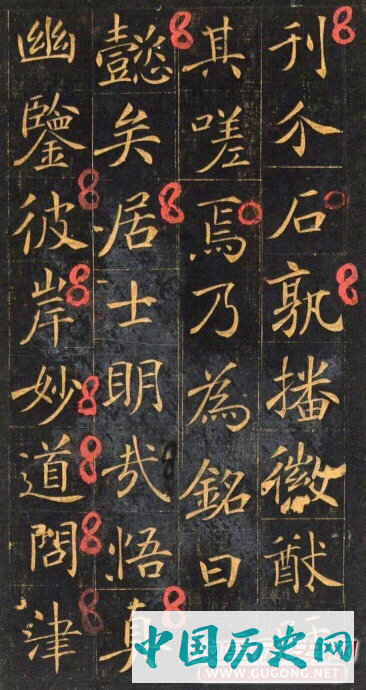 刊介石孰播徽猷
其嗟焉乃為銘曰
懿矣居士明哉悟真
幽鑒彼岸妙道問津
中国历史网
WWW.GUGONG.NET